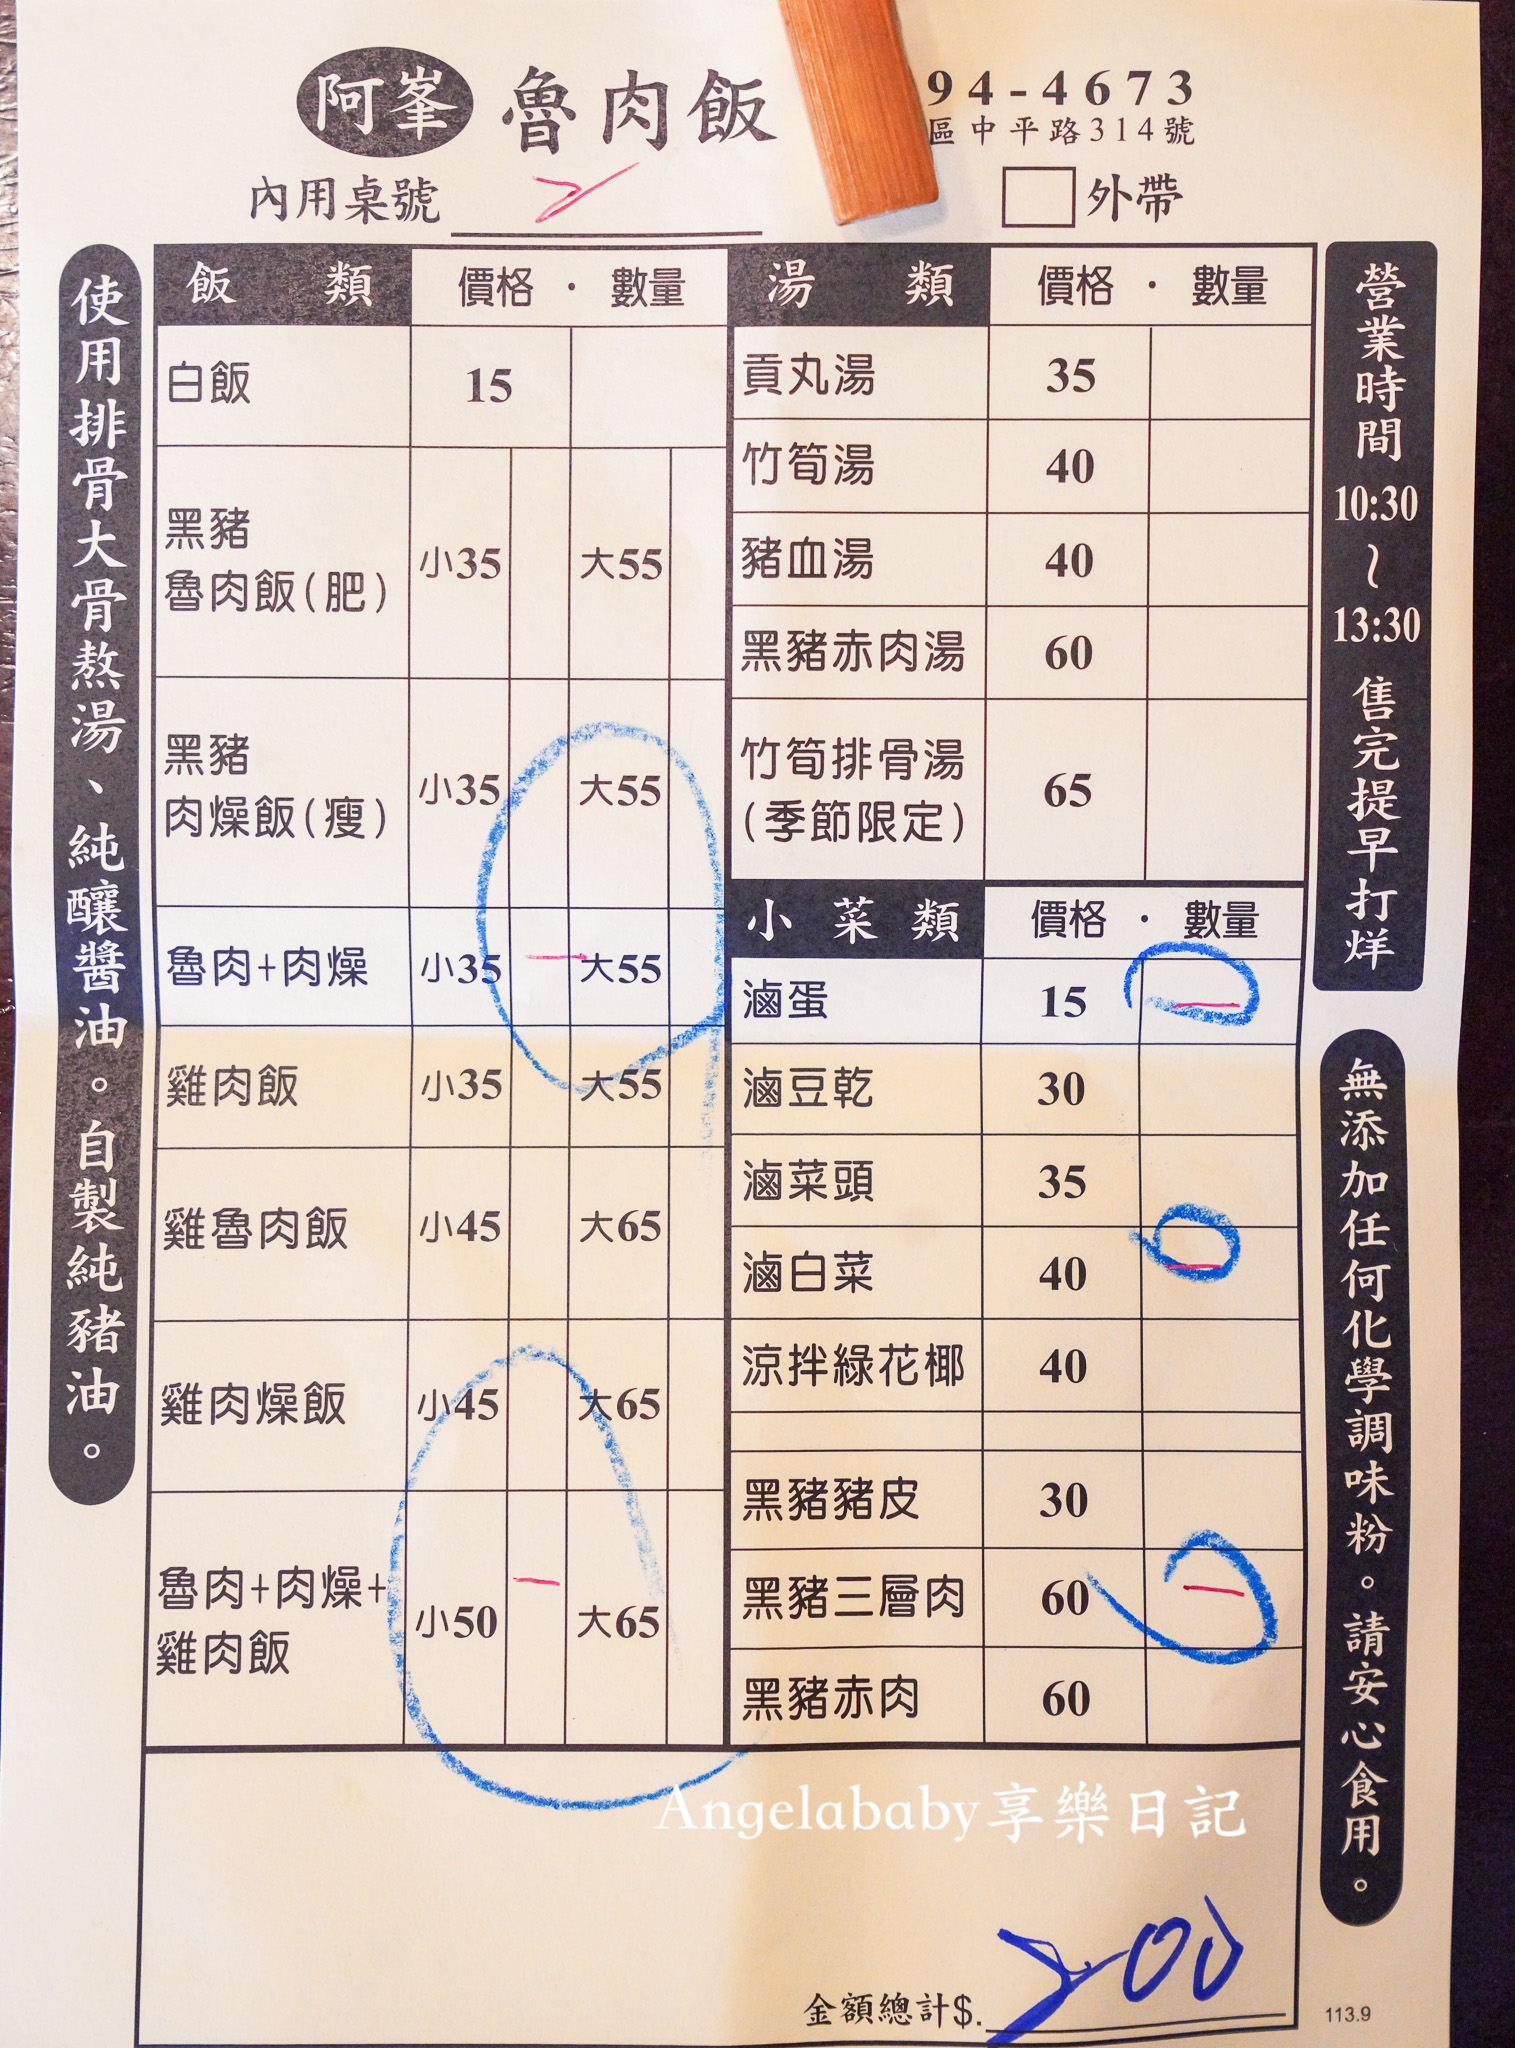 阿峯 魯肉飯
94-4673
區中平路314號
內用桌號 2
外帶
使用排骨大骨熬湯、純釀醬油。自製純豬油。
飯類 價格・數量
白飯 15
黑豬
魯肉飯(肥) 小35 大55
黑豬
肉燥飯(瘦) 小35 大55
魯肉+肉燥 小35 一 大55
雞肉飯 小35 大55
雞魯肉飯 小45 大65
雞肉燥飯 小45 大65
魯肉+肉燥+
雞肉飯 小50 一 大65
湯類 價格・數量
貢丸湯 35
竹筍湯 40
豬血湯 40
黑豬赤肉湯 60
竹筍排骨湯
(季節限定) 65
小菜類 價格・數量
滷蛋 15 一
滷豆乾 30
滷菜頭 35
滷白菜 40 一
涼拌綠花椰 40
黑豬豬皮 30
黑豬三層肉 60 一
黑豬赤肉 60
營業時間 10:30~13:30 售完提早打烊
無添加任何化學調味粉。請安心食用。
Angelababy享樂日記
金額總計$. 200
113.9